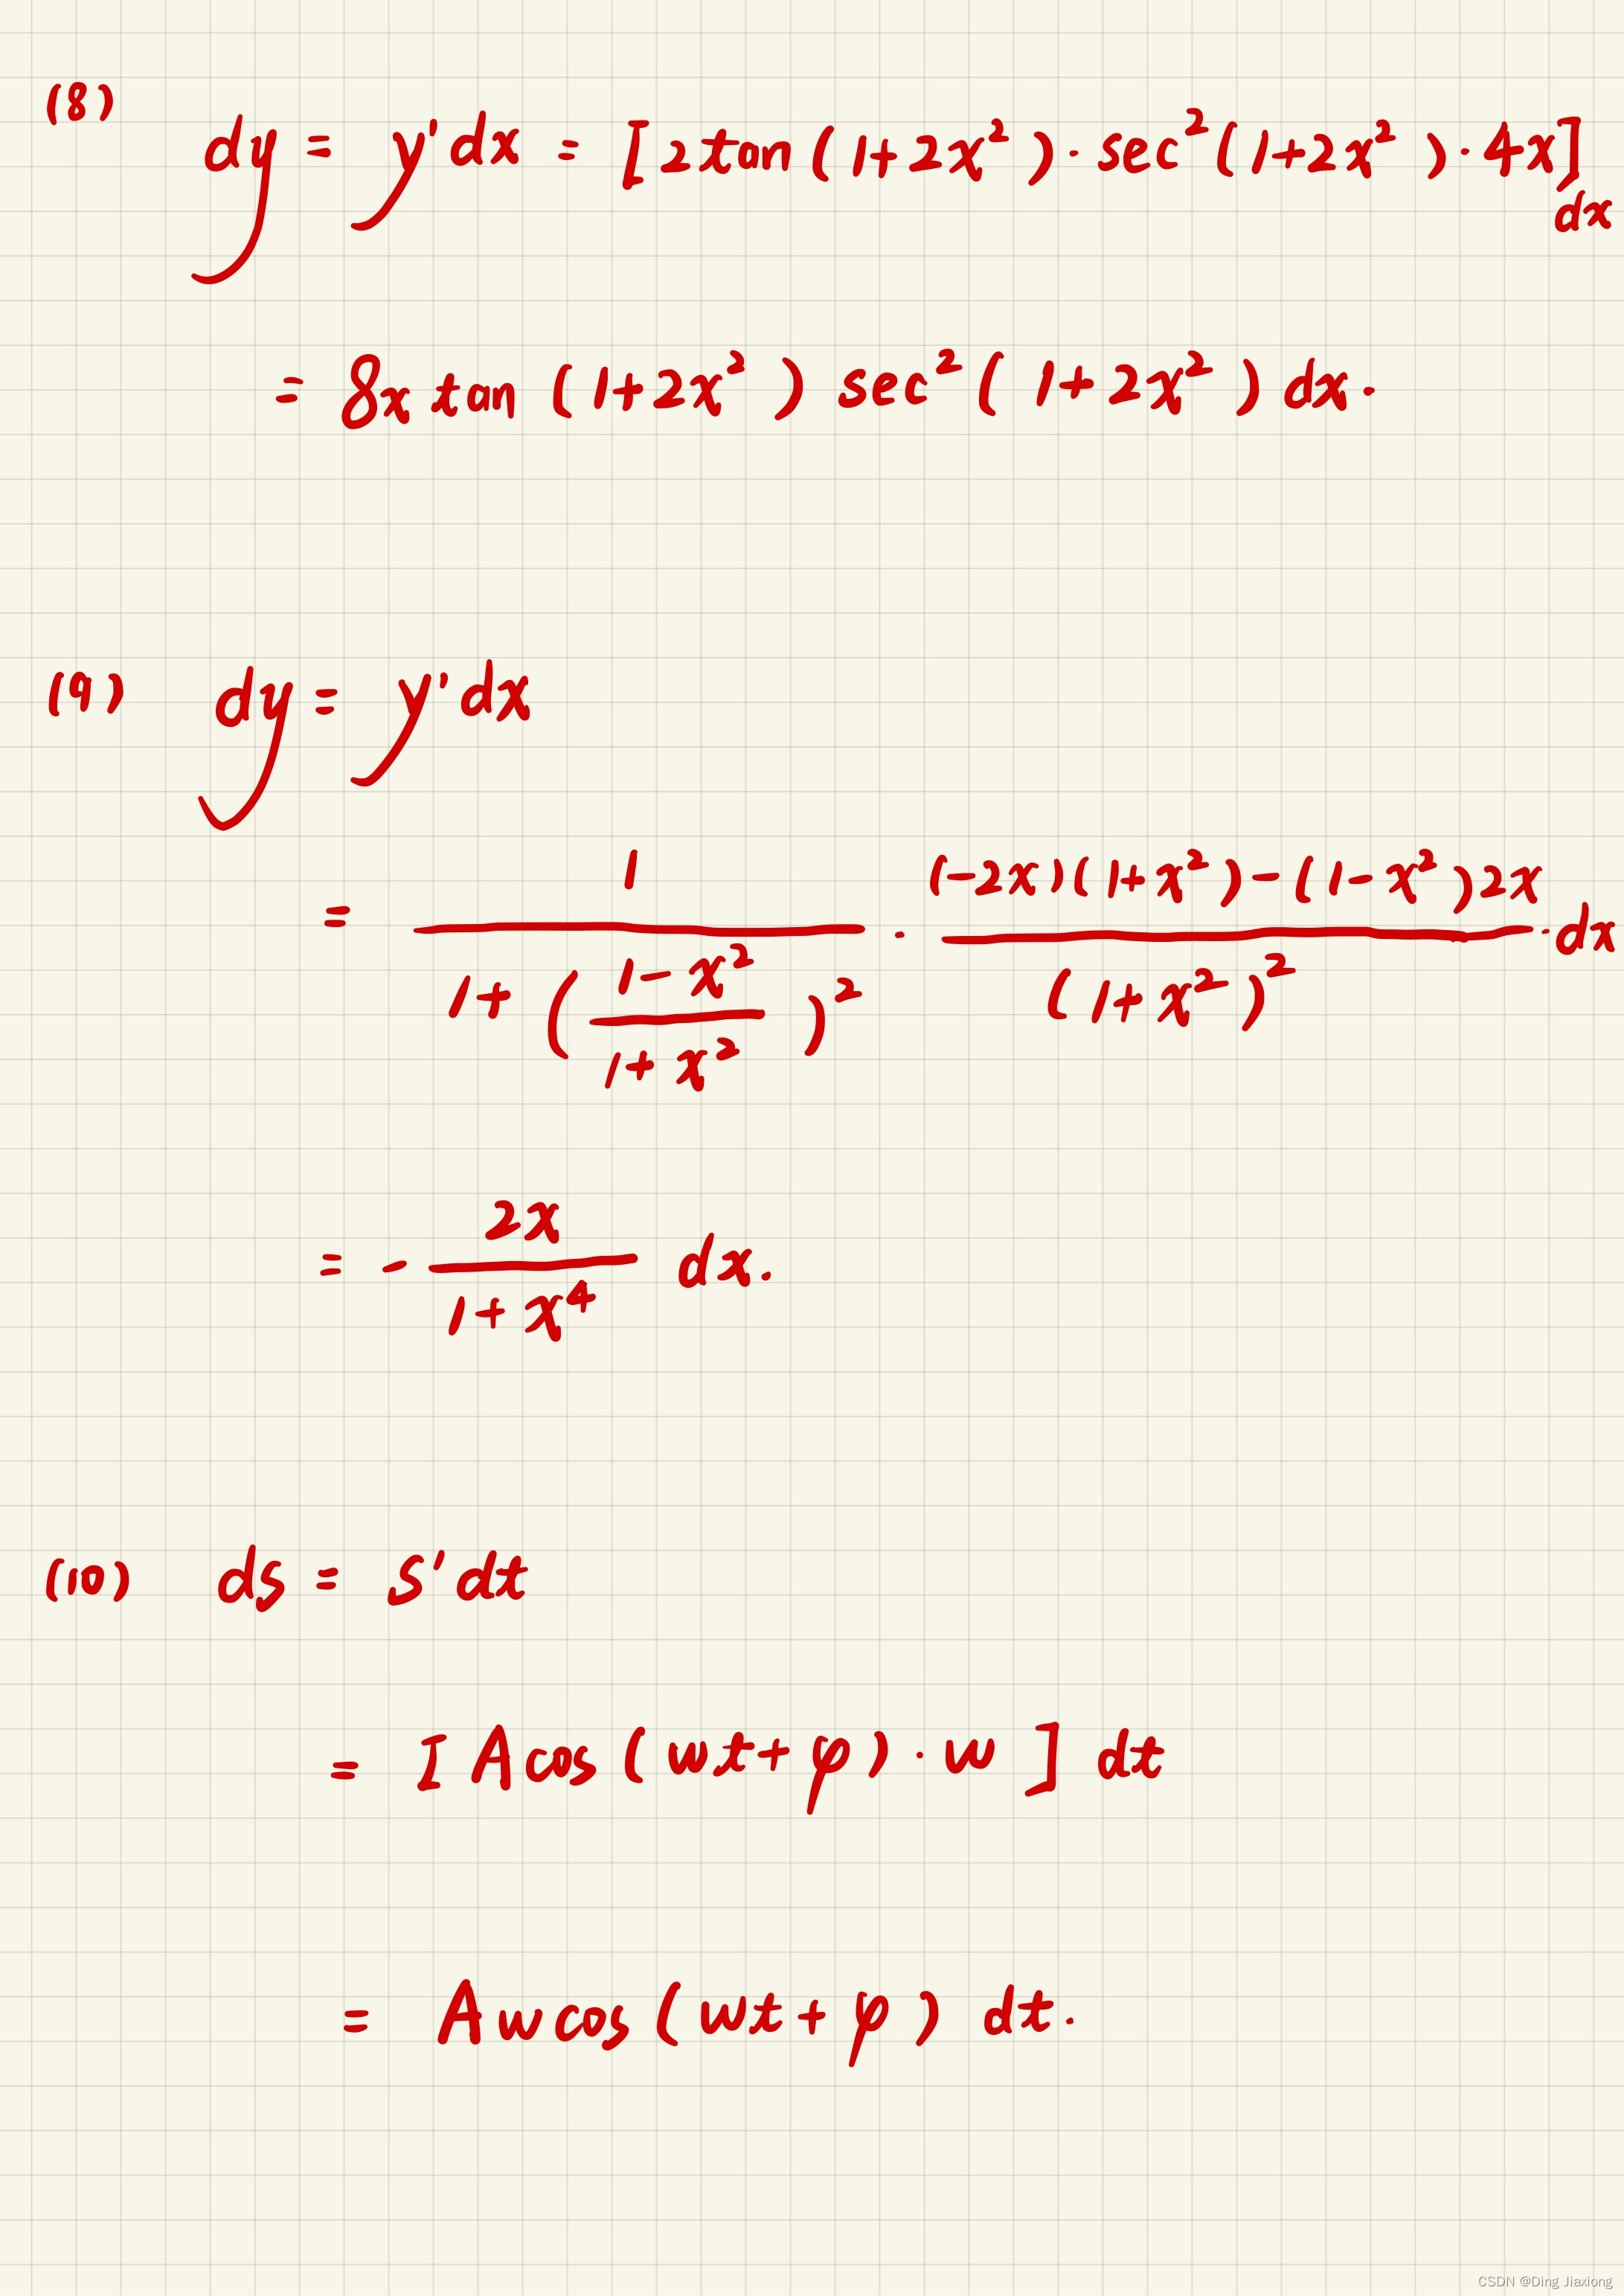 (8) dy = y'dx = [2tan(1+2x²)·sec²(1+2x²)·4x]
dx
= 8x tan(1+2x²) sec²(1+2x²) dx.
(9) dy = y'dx
= \frac{1}{1+(\frac{1-x²}{1+x²})²} · \frac{(-2x)(1+x²)-(1-x²)2x}{(1+x²)²} · dx
= - \frac{2x}{1+x⁴} dx.
(10) ds = s'dt
= [Acos(wt+φ)·w] dt
= Awcos(wt+φ) dt.
CSDN @Ding Jiaxiong